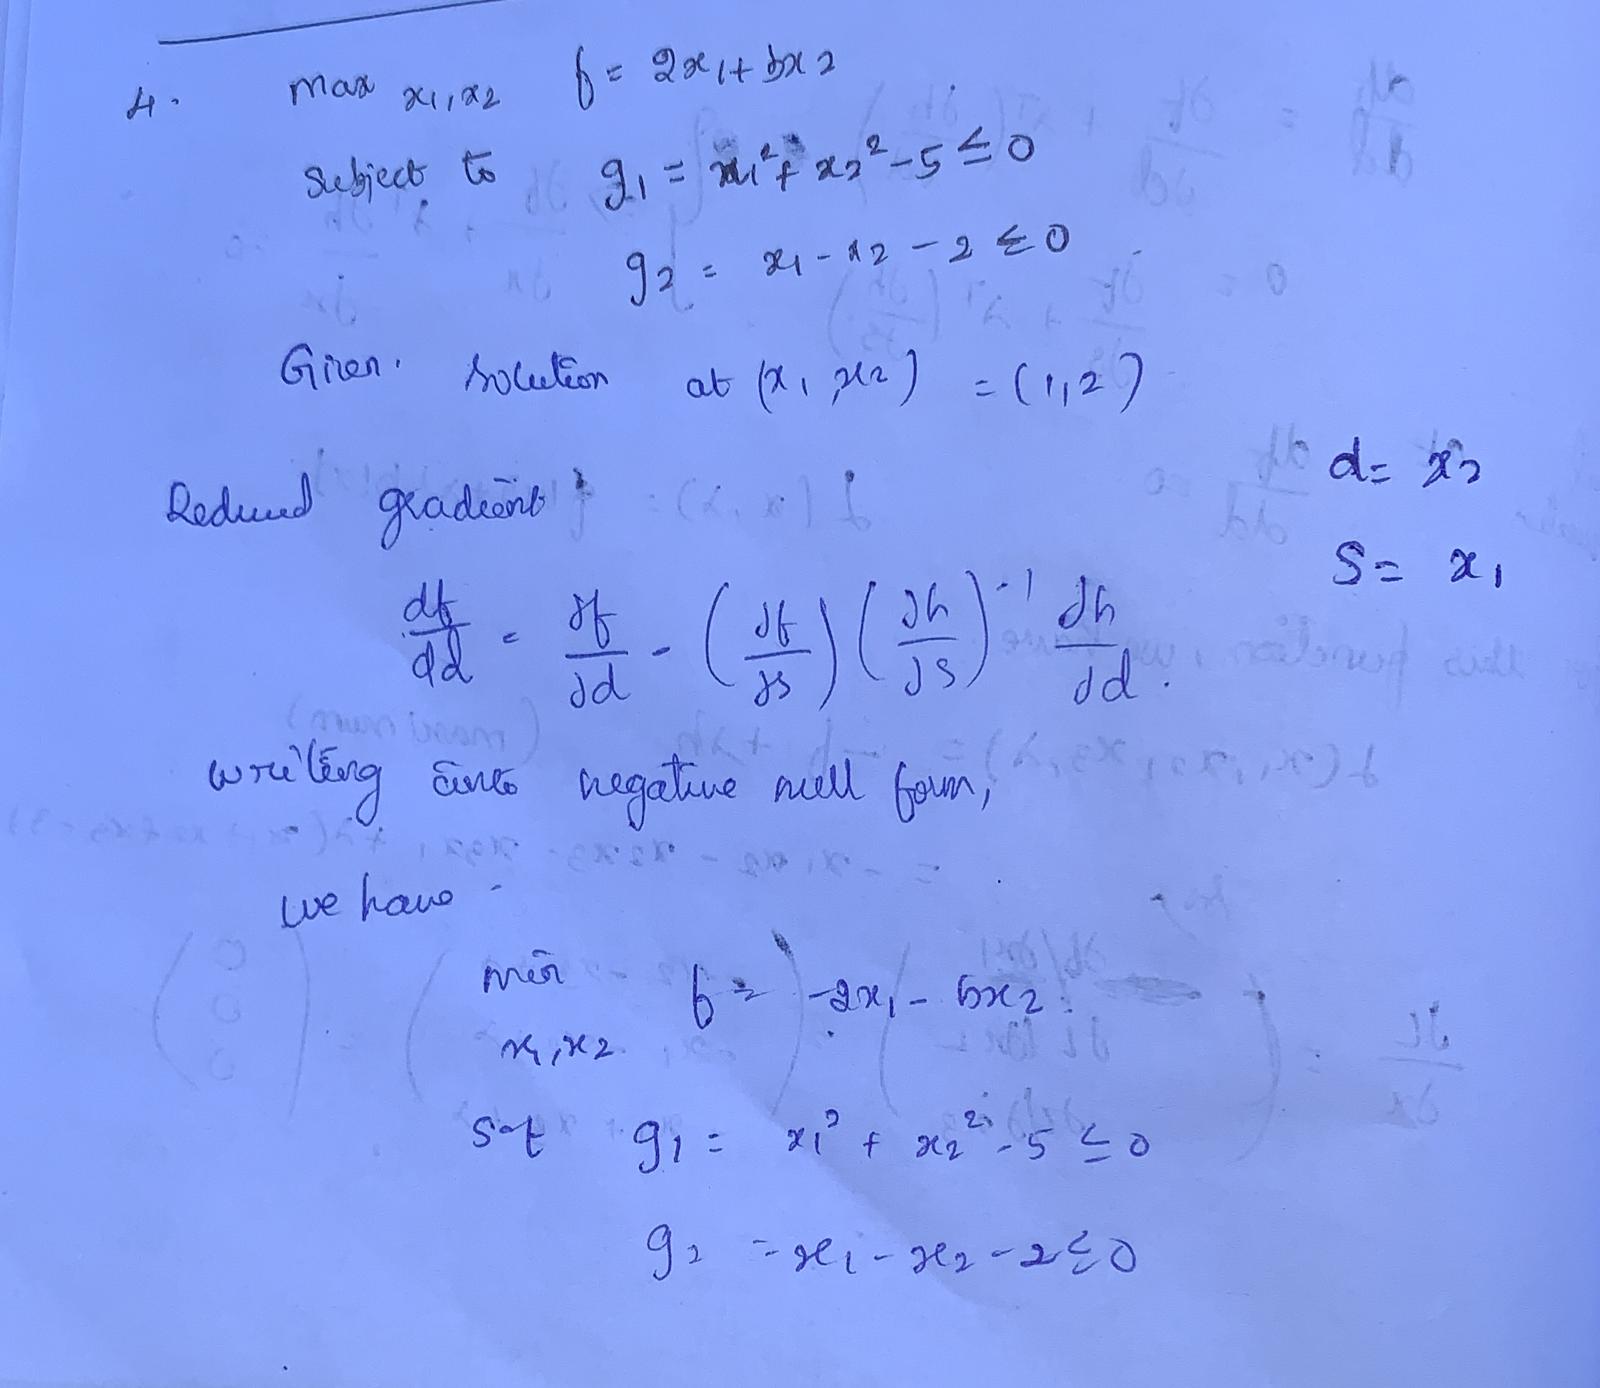 4. max x1,x2 f = 2x1 + bx2
subject to g1 = x1² + x2² - 5 ≤ 0
g2 = x1 - x2 - 2 ≤ 0
Given. solution at (x1, x2) = (1,2)
d = x2
Reduced gradient
S = x1
df/dd = ∂f/∂d - (∂f/∂s) (∂h/∂s)⁻¹ ∂h/∂d.
writing into negative null form,
we have
min x1,x2 f = -2x1 - bx2
s.t g1 = x1² + x2² - 5 ≤ 0
g2 = x1 - x2 - 2 ≤ 0